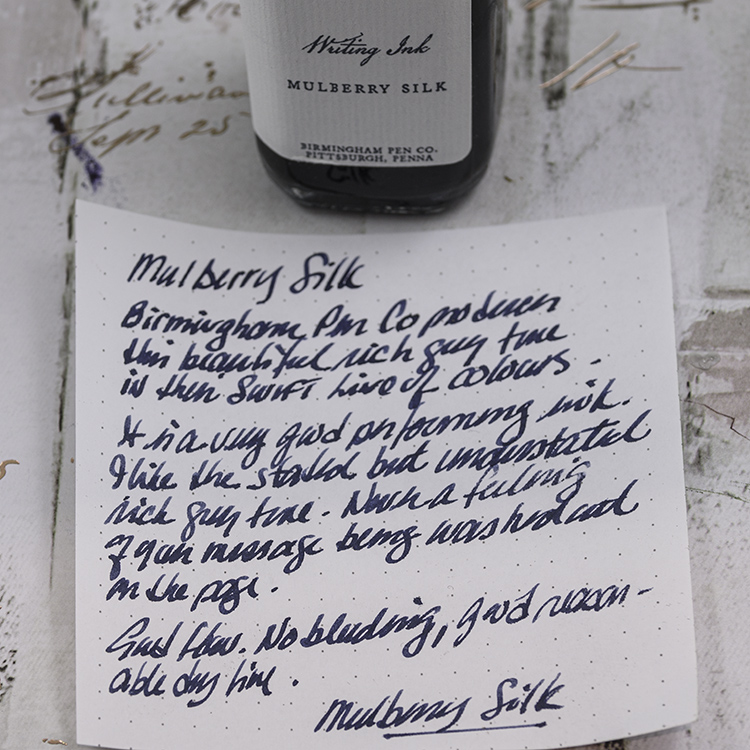 Writing Ink
MULBERRY SILK
BIRMINGHAM PEN CO.
PITTSBURGH, PENNA
Sullivan
Sept 25
Mulberry Silk
Birmingham Pen Co produces
this beautiful rich grey tone
in their Swift Line of colours.
It is a very good performing ink.
I like the storied but understated
rich grey tone. Never a feeling
of your message being washed out
on the page.
Good flow. No bleeding, good reason-
able dry time.
Mulberry Silk